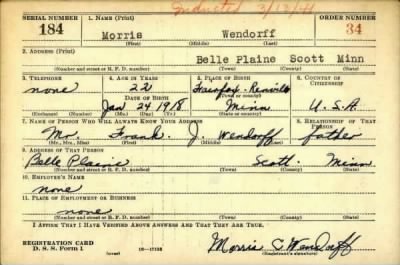 Inducted 3/13/41
SERIAL NUMBER 1. NAME (Print) ORDER NUMBER
184 Morris Wendorff 34
(First) (Middle) (Last)
2. ADDRESS (Print)
Belle Plaine Scott Minn
(Number and street or R. F. D. number) (Town) (County) (State)
3. TELEPHONE 4. AGE IN YEARS 5. PLACE OF BIRTH 6. COUNTRY OF CITIZENSHIP
none 22 Fairfax - Renville
DATE OF BIRTH (Town or county)
Jan 24 1918 Minn U.S.A
(Exchange) (Number) (Mo.) (Day) (Yr.) (State or country)
7. NAME OF PERSON WHO WILL ALWAYS KNOW YOUR ADDRESS 8. RELATIONSHIP OF THAT PERSON
Mr. Frank J. Wendorff father
(Mr., Mrs., Miss) (First) (Middle) (Last)
9. ADDRESS OF THAT PERSON
Belle Plaine Scott Minn
(Number and street or R. F. D. number) (Town) (County) (State)
10. EMPLOYER'S NAME
none
11. PLACE OF EMPLOYMENT OR BUSINESS
none
(Number and street or R. F. D. number) (Town) (County) (State)
I AFFIRM THAT I HAVE VERIFIED ABOVE ANSWERS AND THAT THEY ARE TRUE.
REGISTRATION CARD
D. S. S. Form 1 (over) Morris C Wendorff
(Registrant's signature)